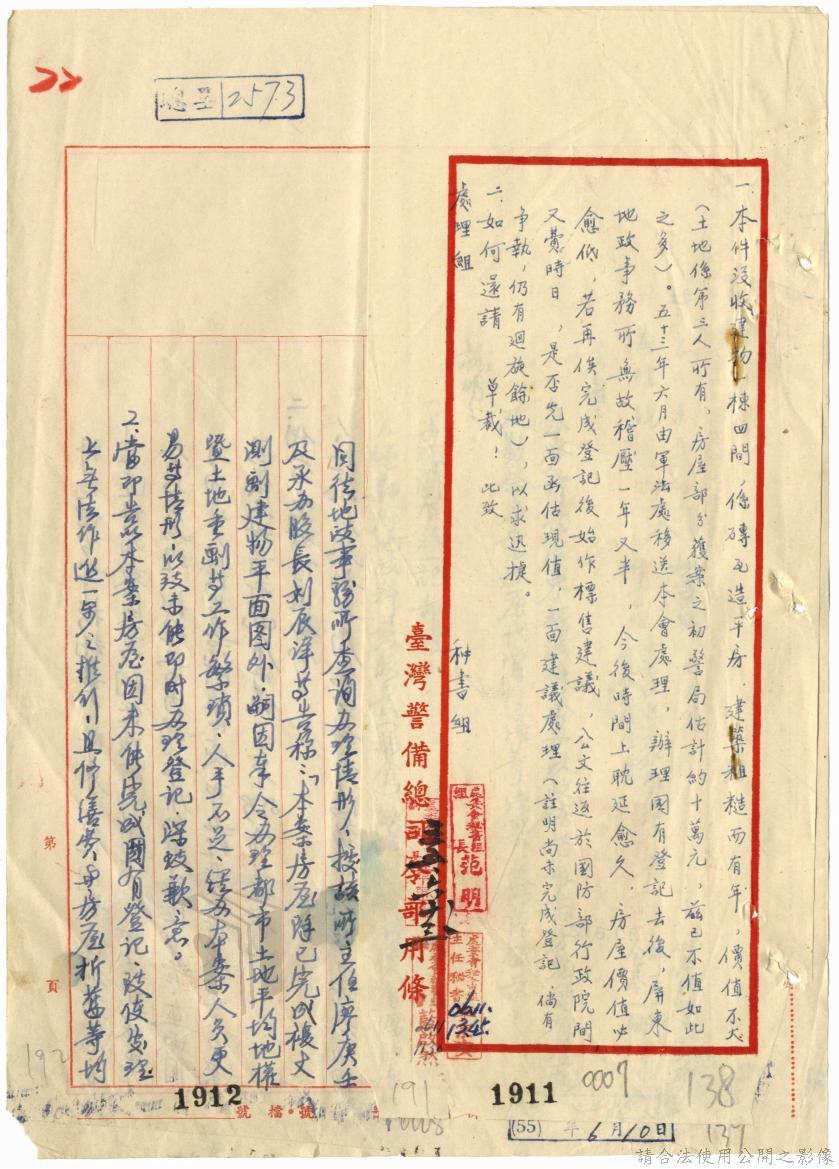 總星 2573
一、本件沒收建物一棟四間，係磚瓦造平房，建築粗糙而有年，價值不大
（土地係第三人所有，房屋部分獲案之初警局估計約十萬元，茲已不值如此
之多）。五十三年六月由軍法處移送本會處理，辦理國有登記去後，屏東
地政事務所無故稽壓一年又半，今後時間上耽延愈久，房屋價值必
愈低，若再俟完成登記後始作標售建議，公文往返於國防部行政院間，
又費時日，是否先一面函估現值，一面建議處理（註明尚未完成登記，倘有
爭執，仍有迴旋餘地），以求迅捷。
二、如何還請 卓裁！此致
處理組
秘書組
組長范明
主任秘書
0611.
1345
臺灣警備總司令部用條
同往地政事務所查詢辦理情形，據該所主任廖庚壬
及承辦股長利辰洋等告稱：「本案房屋除已完成複丈
測劃建物平面图外，嗣因奉令辦理都市土地平均地權
暨土地重劃等工作繁瑣，人手不足，經辦本案人員更
易等情形，以致未能即時辦理登記，深致歉意。
二、當即告以本案房屋因未能完成國有登記，致使處理
上無法作進一步之推行，且修繕費與房屋折舊等均
第
頁
號檔
號
192
1912
191
0008
1911
0007
138
137
(55) 年6月10日
請合法使用公開之影像